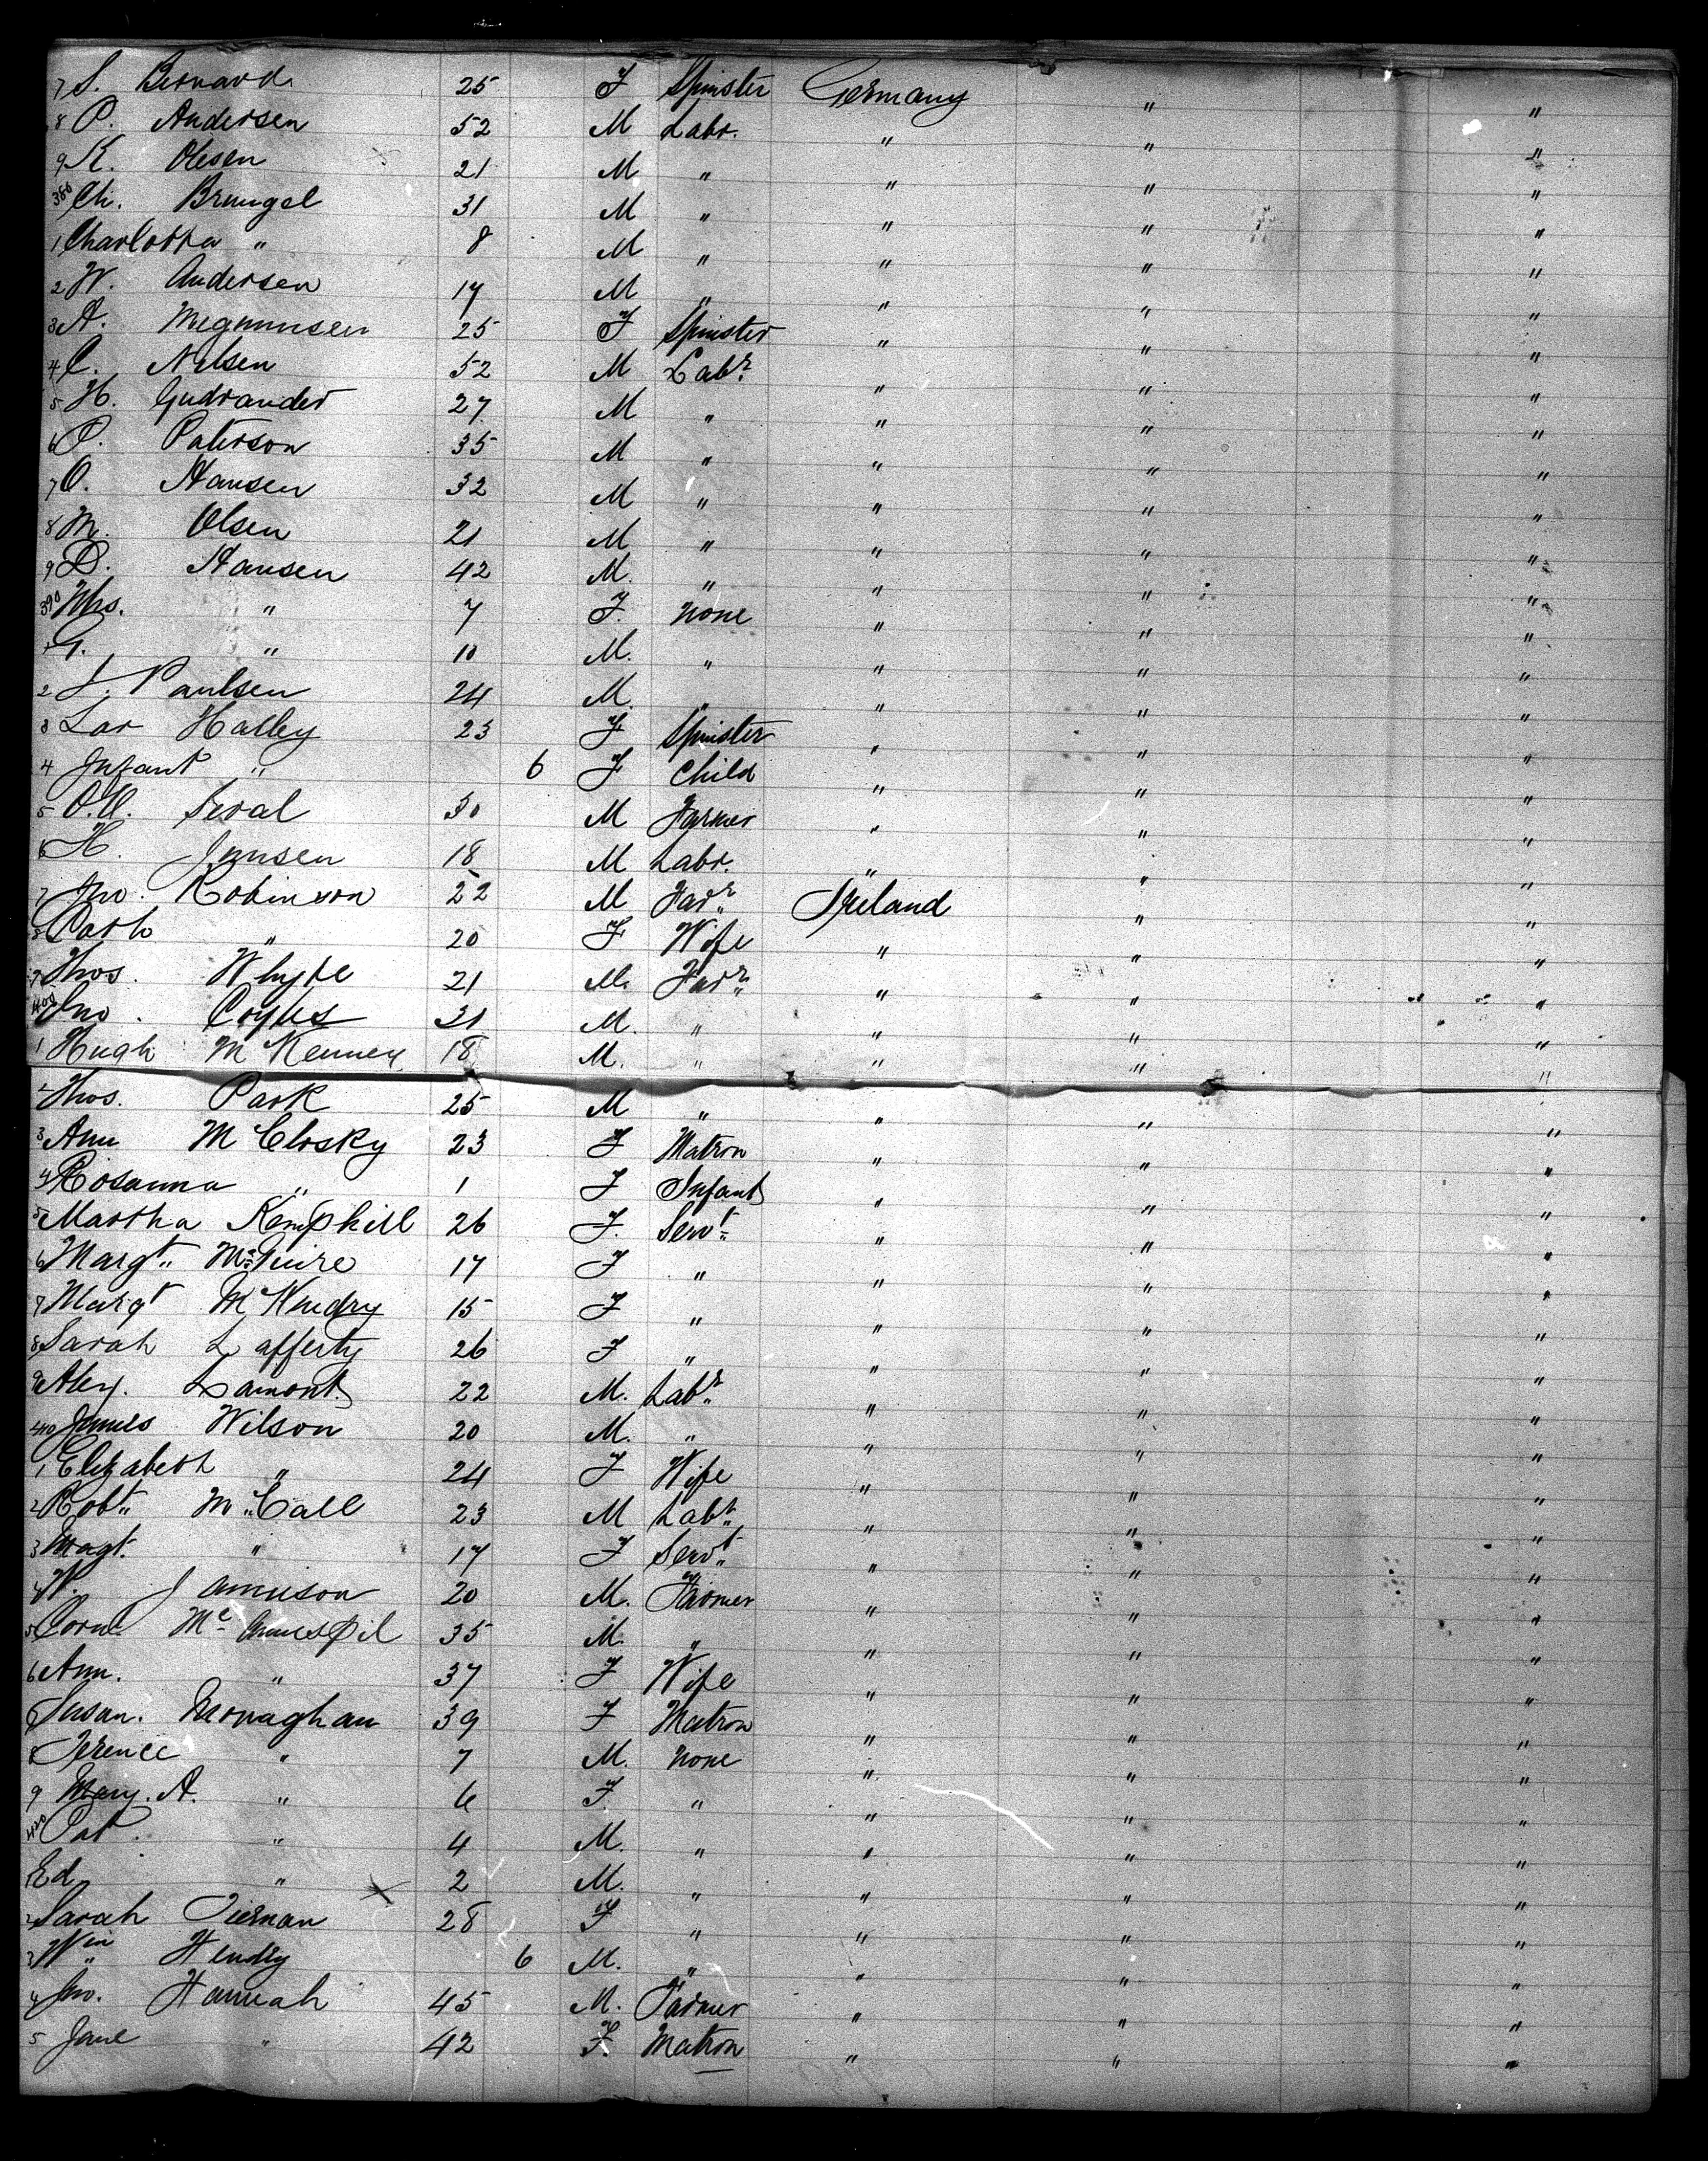 7 S. Bernard 25 F Spinster Germany " "
8 P. Andersen 52 M Labr. " " "
9 K. Olesen 21 M " " " "
380 Ch. Brungel 31 M " " " "
1 Charlotta " 8 M " " " "
2 W. Andersen 17 M " " " "
3 A. Megmunsen 25 F Spinster " " "
4 C. Nelsen 52 M Labr. " " "
5 H. Gudrander 27 M " " " "
6 P. Paterson 35 M " " " "
7 O. Hansen 32 M " " " "
8 M. Olsen 21 M " " " "
9 D. Hansen 42 M. " " " "
390 Mrs. " 7 F. None " " "
1 G. " 10 M. " " " "
2 J. Paulsen 24 M. " " " "
3 Lar Halley 23 F Spinster " " "
4 Infant " 6 F Child " " "
5 O.U. Seval 30 M Farmer " " "
6 H. Jensen 18 M Labr. " " "
7 Jno. Robinson 22 M Farr. Ireland " "
8 Cath " 20 F Wife " " "
9 Thos. Whyte 21 M. Farr. " " "
400 Jno. Coyles 21 M. " " " "
1 Hugh McKenney 18 M. " " " "
2 Thos. Park 25 M " " " "
3 Ann McClosky 23 F Matron " " "
4 Rosanna " 1 F Infant " " "
5 Martha Kemphill 26 F. Servt. " " "
6 Margt. McGuire 17 F " " " "
7 Margt McKendry 15 F " " " "
8 Sarah Lafferty 26 F " " " "
9 Alex. Lamont 22 M. Labr. " " "
410 James Wilson 20 M. " " " "
1 Elizabeth " 24 F Wife " " "
2 Robt. McCall 23 M Labr. " " "
3 Magt. " 17 F Servt. " " "
4 W. Jamieson 20 M. Farmer " " "
5 Corns. Mc 35 M. " " " "
6 Ann. " 37 F Wife " " "
Susan. Monaghan 39 F Matron " " "
8 Terence " 7 M. None " " "
9 Mary. A. " 6 F. " " " "
420 Pat. " 4 M. " " " "
1 Ed " 2 M. " " " "
2 Sarah Tiernan 28 F " " " "
3 Wm Hendry 6 M. " " " "
4 Jno. Hannah 45 M. Farmer " " "
5 Jane " 42 F. Matron " " "